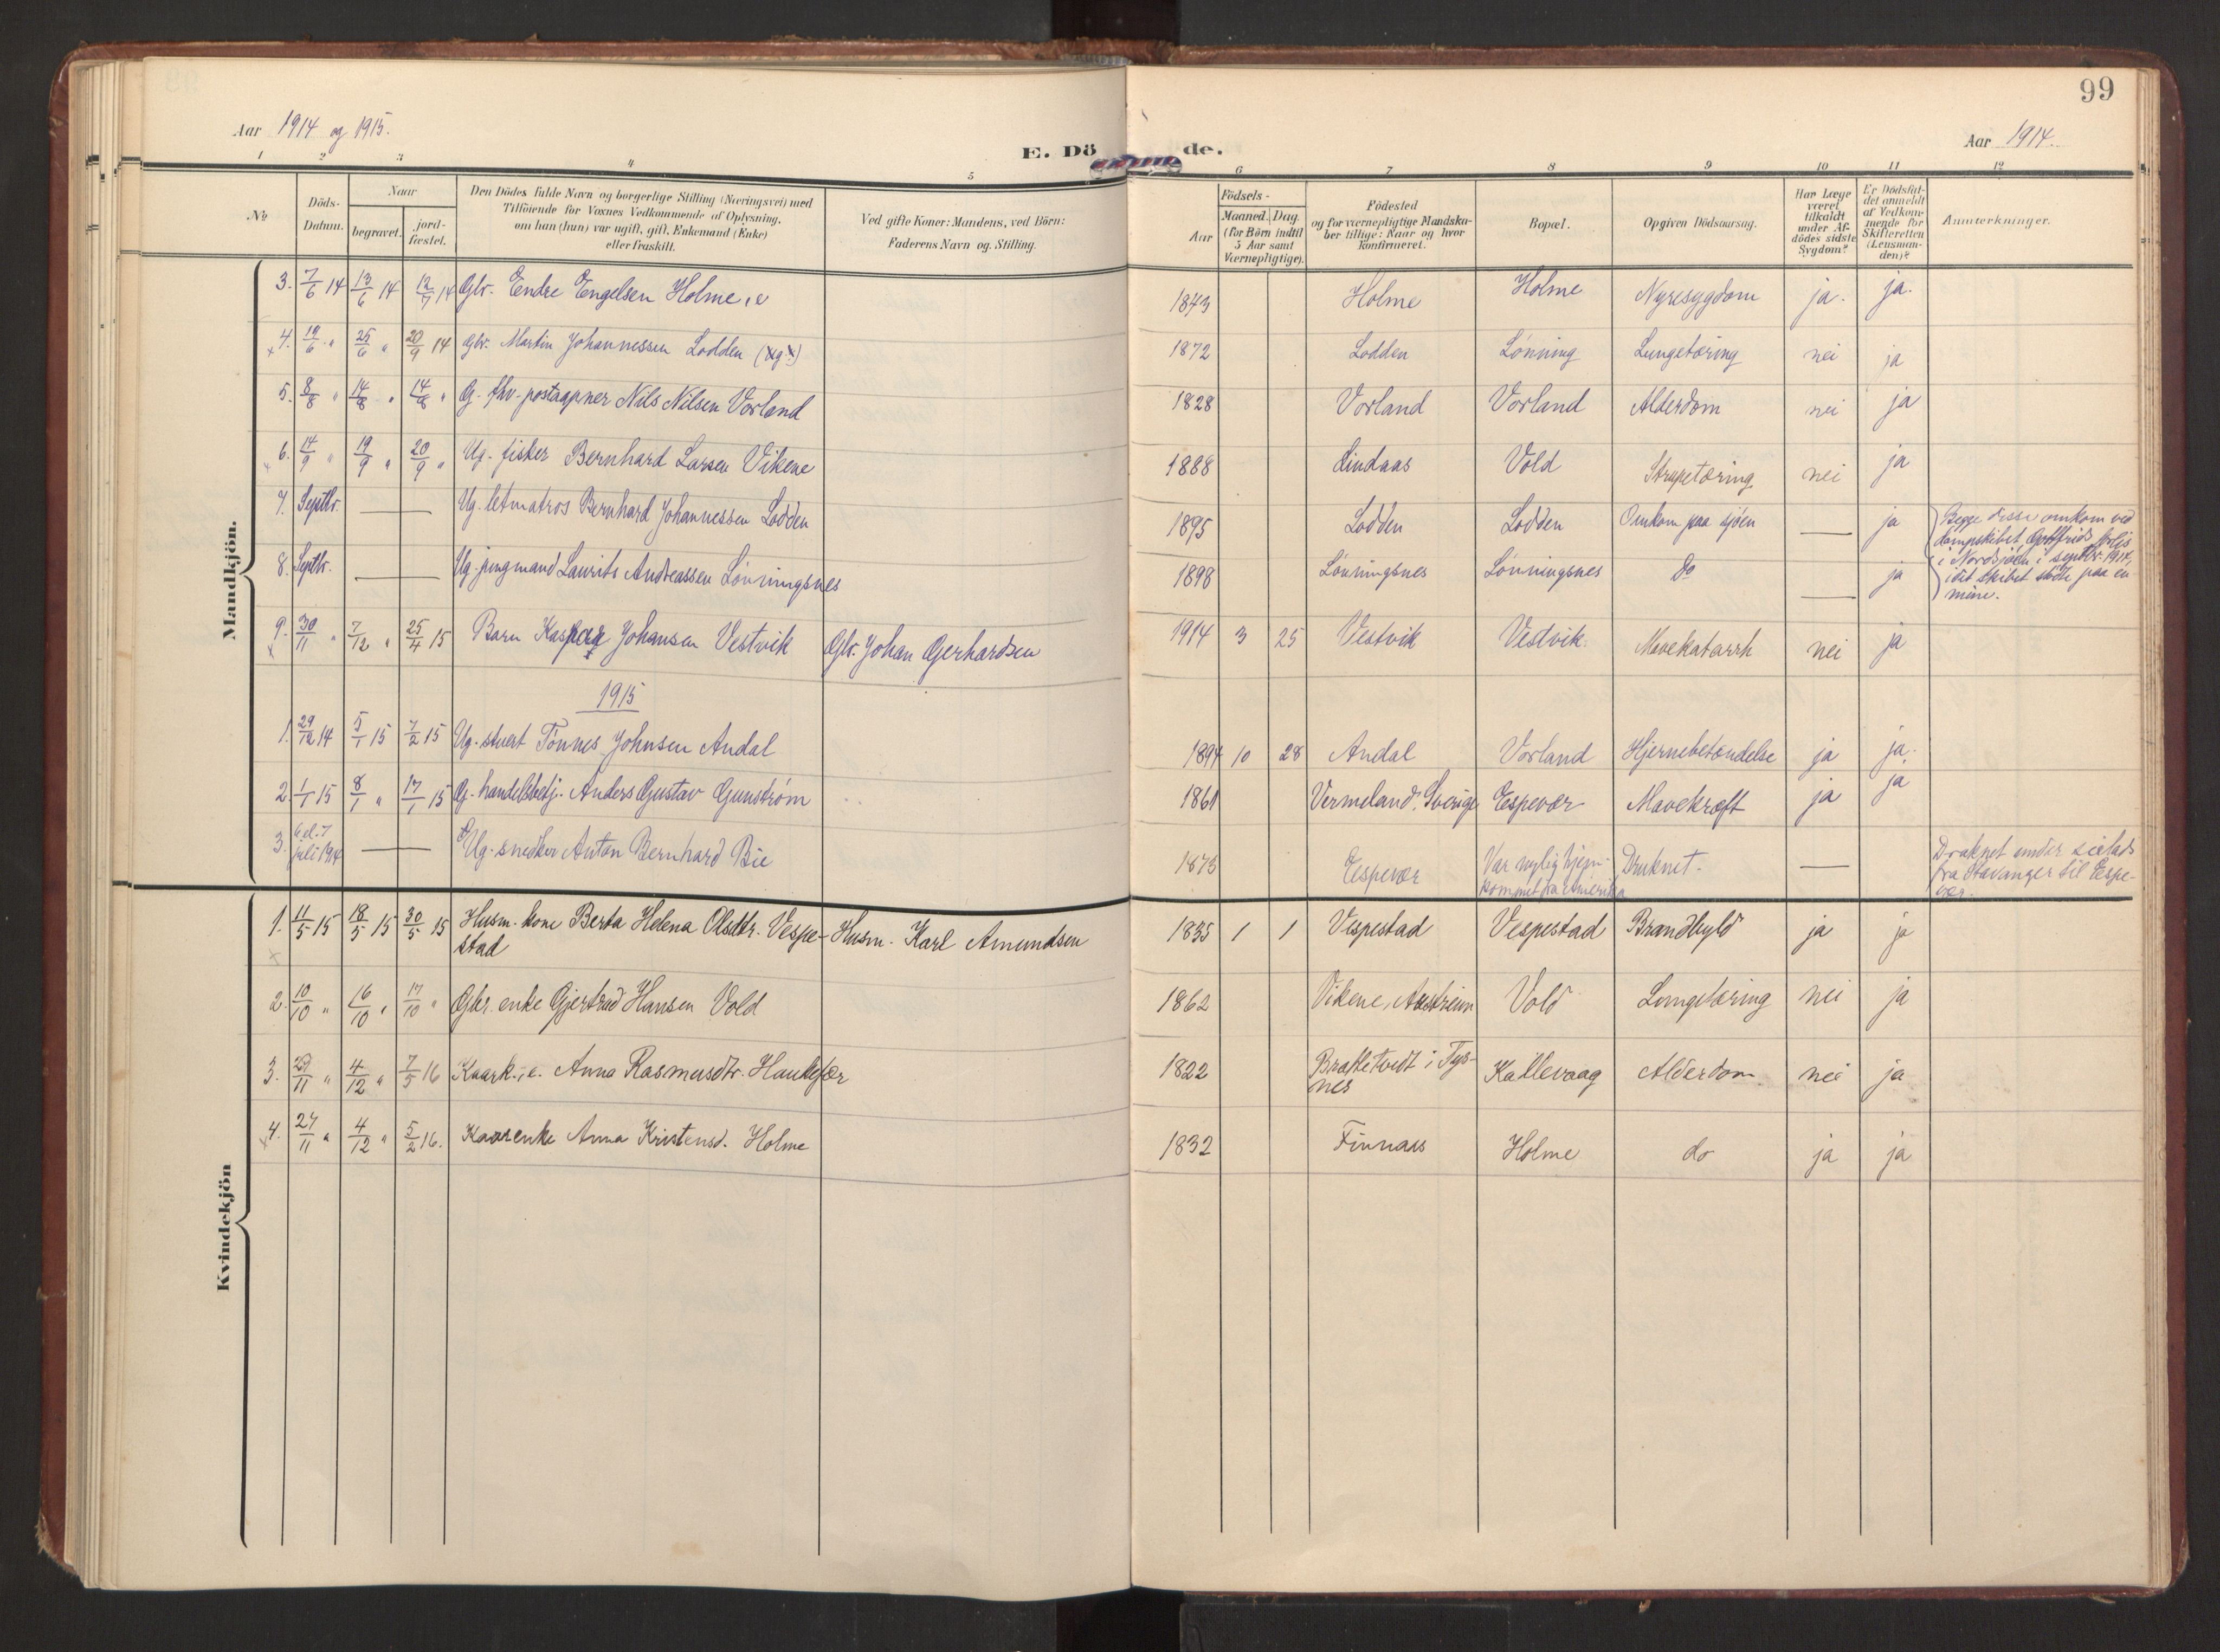 99
Aar 1914 og 1915.
E. Dö
de.
Aar 1914.
1 2 3 4 5 6 7 8 9 10 11 12
No
Döds-
Datum.
Naar
begravet.
jord-
fæstet.
Den Dödes fulde Navn og borgerlige Stilling (Næringsvei) med
Tilföiende for Voxnes Vedkommende af Oplysning,
om han (hun) var ugift, gift, Enkemand (Enke)
eller fraskilt.
Ved gifte Koner: Mandens, ved Börn:
Faderens Navn og Stilling.
Aar
Födsels-
Maaned. Dag.
(for Börn indtil
5 Aar samt
Værnepligtige).
Födested
og for værnepligtige Mandska-
ber tillige: Naar og hvor
konfirmeret.
Bopæl.
Opgiven Dödsaarsag.
Har Læge
været
tilkaldt
under Af-
dödes sidste
Sygdom?
Er Dödsfal-
det anmeldt
af Vedkom-
mende for
Skifteretten
(Lensman-
den)?
Anmærkninger.
Mandkjön.
3. 7/6 14 13/6 14 12/7 14 Gbr. Endre Engelsen Holme, e 1843 Holme Holme Nyresygdom ja. ja.
4. 19/6 " 25/6 " 20/9 14 Gbr. Martin Johannessen Lodden 1872 Lodden Lønning Lungetæring nei ja
5. 8/8 " 14/8 " 14/8 " G. fhv. postaapner Nils Nilsen Vorland 1828 Vorland Vorland Alderdom nei ja
6. 14/9 " 19/9 " 20/9 " Ug. fisker Bernhard Larsen Vikene 1888 Lindaas Vold Strupetæring nei ja
7. Septbr. — — Ug. letmatros Bernhard Johannessen Lodden 1895 Lodden Lodden Omkom paa sjøen — ja
8. Septbr. — — Ug. jungmand Laurits Andreassen Lønningsnes 1898 Lønningsnes Lønningsnes do — ja
Begge disse omkom ved
dampskibet
i Nordsjøen i septbr. 1914,
idet skibet stötte paa en
mine.
9. 30/11 " 7/12 " 25/4 15 Barn Kaspar Johansen Vestvik Gbr. Johan Gerhardsen 1914 3 25 Vestvik Vestvik Mavekatarrh nei ja
1915
1. 29/12 14 5/1 15 7/2 15 Ug. stuert Tönnes Johnsen Andal 1894 10 28 Andal Vorland Hjernebetændelse ja ja.
2. 1/1 15 8/1 " 17/1 15 G. handelsbetj. Anders Gustav Gunström 1861 Vermeland, Sverige Espevær Mavekræft ja ja
3. juli 1914 — — Ug. snedker Anton Bernhard Bie 1873 Espevær Var nylig hjem-
kommet fra Amerika Druknet. —
Druknet under seilads
fra Stavanger til Espe-
vær.
Kvindekjön
1. 11/5 15 18/5 15 30/5 15 Husm. kone Berta Helena Olsdtr. Vespe-
stad Husm. Karl Amundsen 1835 1 1 Vespestad Vespestad Brandbyld ja ja
2. 10/10 " 16/10 " 17/10 " Gbr. enke Gjertrud Hansen Vold 1862 Vikene, Austrheim Vold Lungetæring nei ja
3. 29/11 " 4/12 " 7/5 16 Kaark. e. Anna Rasmusdtr. 1822 i Tys-
nes Kallevaag Alderdom nei ja
4. 27/11 " 4/12 " 5/2 16. Kaarenke Anna Kristensd. Holme 1832 Finnaas Holme do ja ja